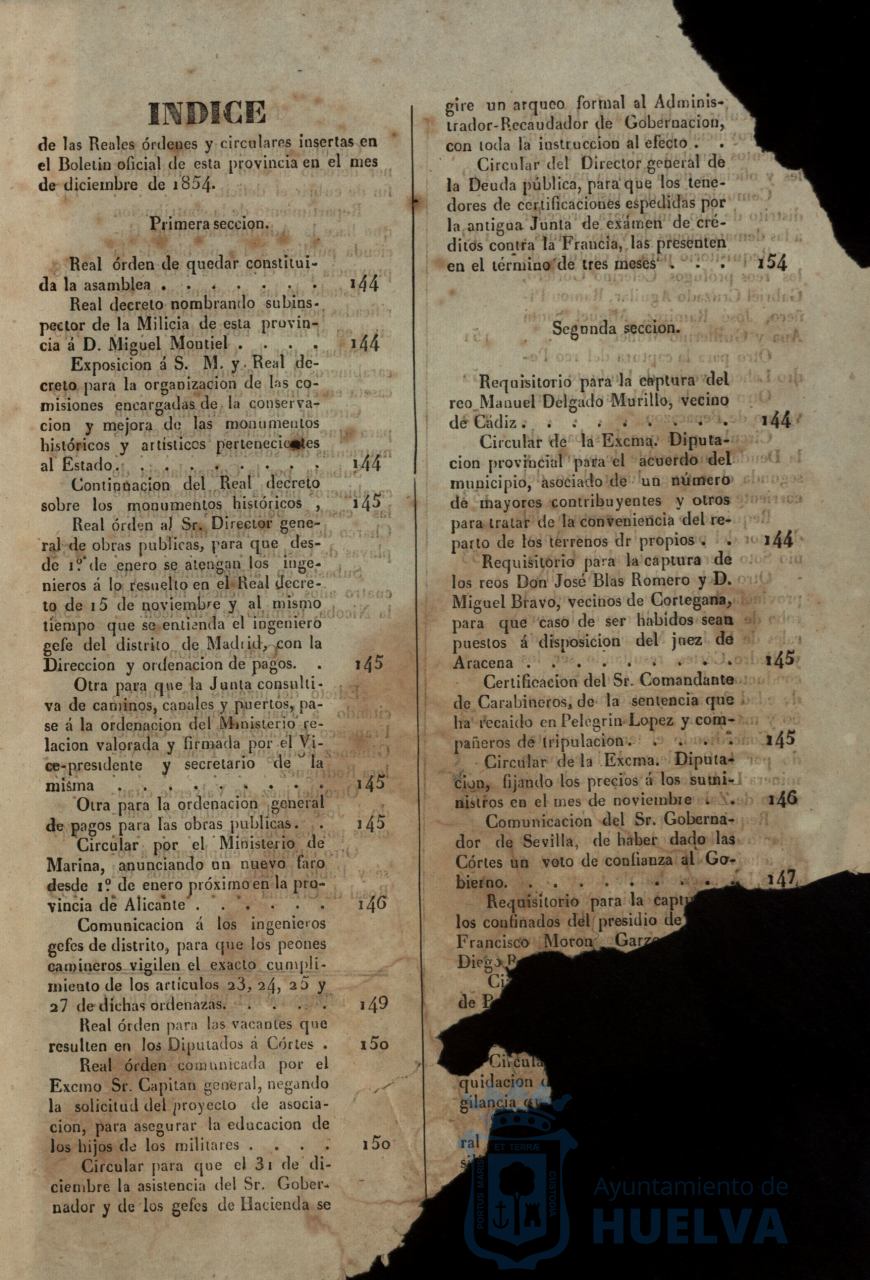 INDICE
de las Reales órdenes y circulares insertas en
el Boletin oficial de esta provincia en el mes
de diciembre de 1854.
Primera seccion.
Real órden de quedar constitui-
da la asamblea . . . . . . . 144
Real decreto nombrando subins-
pector de la Milicia de esta provin-
cia á D. Miguel Montiel . . . . 144
Exposicion á S. M. y Real de-
creto para la organizacion de las co-
misiones encargadas de la conserva-
cion y mejora de las monumentos
históricos y artísticos pertenecientes
al Estado. . . . . . . . . 144
Continuacion del Real decreto
sobre los monumentos históricos , 145
Real órden al Sr. Director gene-
ral de obras publicas, para que des-
de 1.º de enero se atengan los inge-
nieros á lo resuelto en el Real decre-
to de 15 de noviembre y al mismo
tiempo que se entienda el ingeniero
gefe del distrito de Madrid, con la
Direccion y ordenacion de pagos. . 145
Otra para que la Junta consulti-
va de caminos, canales y puertos, pa-
se á la ordenacion del Ministerio re-
lacion valorada y firmada por el Vi-
ce-presidente y secretario de la
misma . . . . . . . . 145
Otra para la ordenacion general
de pagos para las obras publicas. . 145
Circular por el Ministerio de
Marina, anunciando un nuevo faro
desde 1.º de enero próximo en la pro-
vincia de Alicante . . . . . . 146
Comunicacion á los ingenieros
gefes de distrito, para que los peones
camineros vigilen el exacto cumpli-
miento de los artículos 23, 24, 25 y
27 de dichas ordenazas. . . . . 149
Real órden para las vacantes que
resulten en los Diputados á Córtes . 150
Real órden comunicada por el
Excmo Sr. Capitan general, negando
la solicitud del proyecto de asocia-
cion, para asegurar la educacion de
los hijos de los militares . . . . 150
Circular para que el 31 de di-
ciembre la asistencia del Sr. Gober-
nador y de los gefes de Hacienda se
gire un arqueo formal al Adminis-
trador-Recaudador de Gobernacion,
con toda la instruccion al efecto . .
Circular del Director general de
la Deuda pública, para que los tene-
dores de certificaciones espedidas por
la antigua Junta de exámen de cré-
ditos contra la Francia, las presenten
en el término de tres meses . . . 154
Segunda seccion.
Requisitorio para la captura del
reo Manuel Delgado Murillo, vecino
de Cádiz . . . . . . . . 144
Circular de la Excma. Diputa-
cion provincial para el acuerdo del
municipio, asociado de un número
de mayores contribuyentes y otros
para tratar de la conveniencia del re-
parto de los terrenos dr propios . . 144
Requisitorio para la captura de
los reos Don José Blas Romero y D.
Miguel Bravo, vecinos de Cortegana,
para que caso de ser habidos sean
puestos á disposicion del juez de
Aracena . . . . . . . . 145
Certificacion del Sr. Comandante
de Carabineros, de la sentencia que
ha recaido en Pelegrin Lopez y com-
pañeros de tripulacion. . . . . 145
Circular de la Excma. Diputa-
cion, fijando los precios á los sumi-
nistros en el mes de noviembre . . 146
Comunicacion del Sr. Goberna-
dor de Sevilla, de haber dado las
Córtes un voto de confianza al Go-
bierno. . . . . . . . . 147
Requisitorio para la capt
los confinados del presidio de
Francisco Moron Garz
Diego
Ci
de P
Circula
quidacion
gilancia
ral
ET TERRÆ
PORTUS MARIS
CUSTODIA
Ayuntamiento de
HUELVA